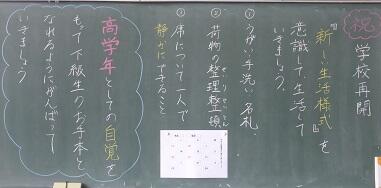 祝
学校再開
『新しい生活様式』を
意識して、生活して
いきましょう。
①うがい、手洗い、名札、
②荷物の整理整頓
せいりせいとん
③席について一人で
静かにすること
高学年としての自覚を
もって、下級生のお手本と
なれるようにがんばって
いきましょう!